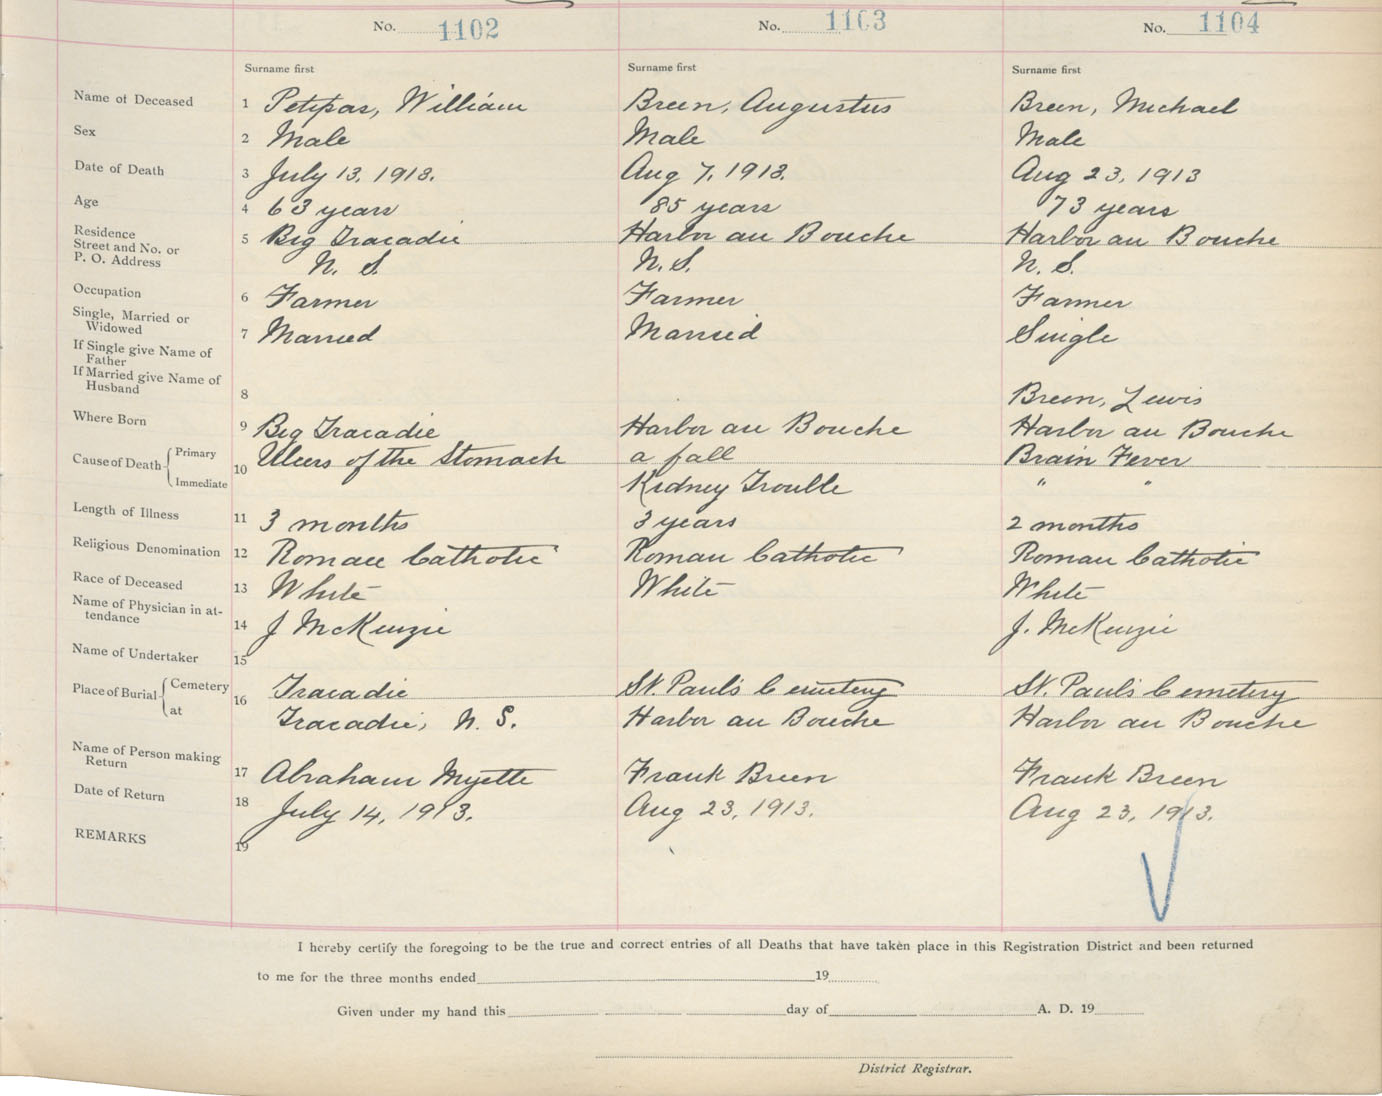 No. 1102 No. 1103 No. 1104
Surname first Surname first Surname first
Name of Deceased 1 Petipas, William Breen, Augustus Breen, Michael
Sex 2 Male Male Male
Date of Death 3 July 13, 1913. Aug 7, 1913. Aug 23, 1913
Age 4 63 years 85 years 73 years
Residence
Street and No. or 5 Big Tracadie Harbor au Bouche Harbor au Bouche
P. O. Address N. S. N. S. N. S.
Occupation 6 Farmer Farmer Farmer
Single, Married or
Widowed 7 Married Married Single
If Single give Name of
Father
If Married give Name of
Husband 8 Breen, Lewis
Where Born 9 Big Tracadie Harbor au Bouche Harbor au Bouche
Cause of Death Primary 10 Ulcers of the Stomach a fall Brain Fever
Immediate Kidney Trouble " "
Length of Illness 11 3 months 3 years 2 months
Religious Denomination 12 Roman Catholic Roman Catholic Roman Catholic
Race of Deceased 13 White White White
Name of Physician in at-
tendance 14 J McKenzie J. McKenzie
Name of Undertaker 15
Place of Burial Cemetery 16 Tracadie St. Paul's Cemetery St. Paul's Cemetery
at Tracadie, N. S. Harbor au Bouche Harbor au Bouche
Name of Person making
Return 17 Abraham Myette Frank Breen Frank Breen
Date of Return 18 July 14, 1913. Aug 23, 1913. Aug 23, 1913.
REMARKS 19
I hereby certify the foregoing to be the true and correct entries of all Deaths that have taken place in this Registration District and been returned
to me for the three months ended 19
Given under my hand this day of A. D. 19
District Registrar.